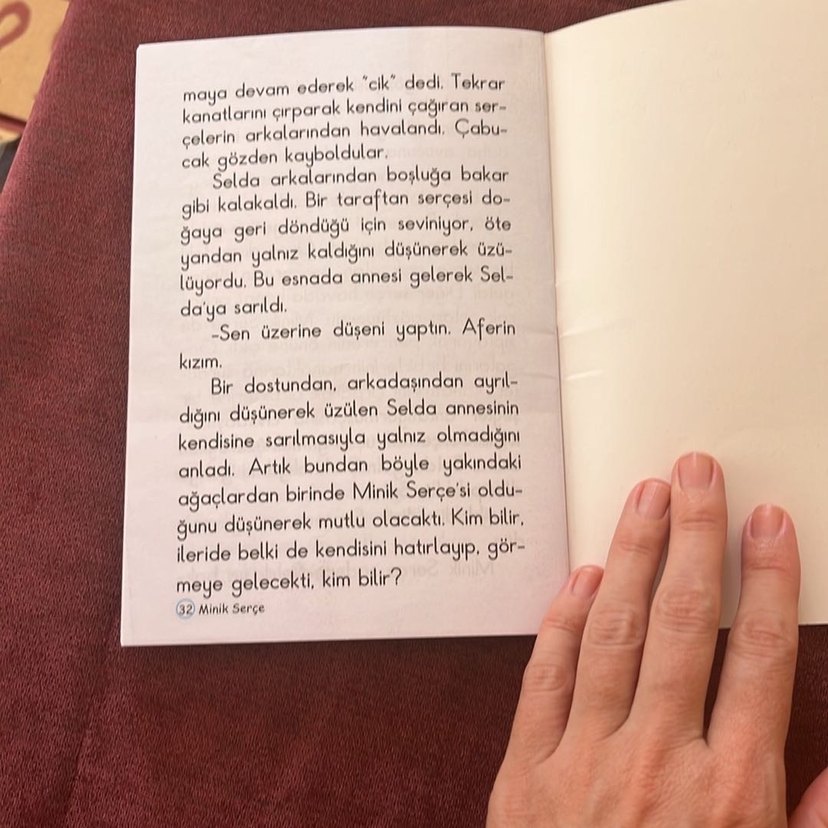 maya devam ederek "cik" dedi. Tekrar
kanatlarını çırparak kendini çağıran ser-
çelerin arkalarından havalandı. Çabu-
cak gözden kayboldular.
Selda arkalarından boşluğa bakar
gibi kalakaldı. Bir taraftan serçesi do-
ğaya geri döndüğü için seviniyor, öte
yandan yalnız kaldığını düşünerek üzü-
lüyordu. Bu esnada annesi gelerek Sel-
da'ya sarıldı.
-Sen üzerine düşeni yaptın. Aferin
kızım.
Bir dostundan, arkadaşından ayrıl-
dığını düşünerek üzülen Selda annesinin
kendisine sarılmasıyla yalnız olmadığını
anladı. Artık bundan böyle yakındaki
ağaçlardan birinde Minik Serçe'si oldu-
ğunu düşünerek mutlu olacaktı. Kim bilir,
ileride belki de kendisini hatırlayıp, gör-
meye gelecekti, kim bilir?
32 Minik Serçe